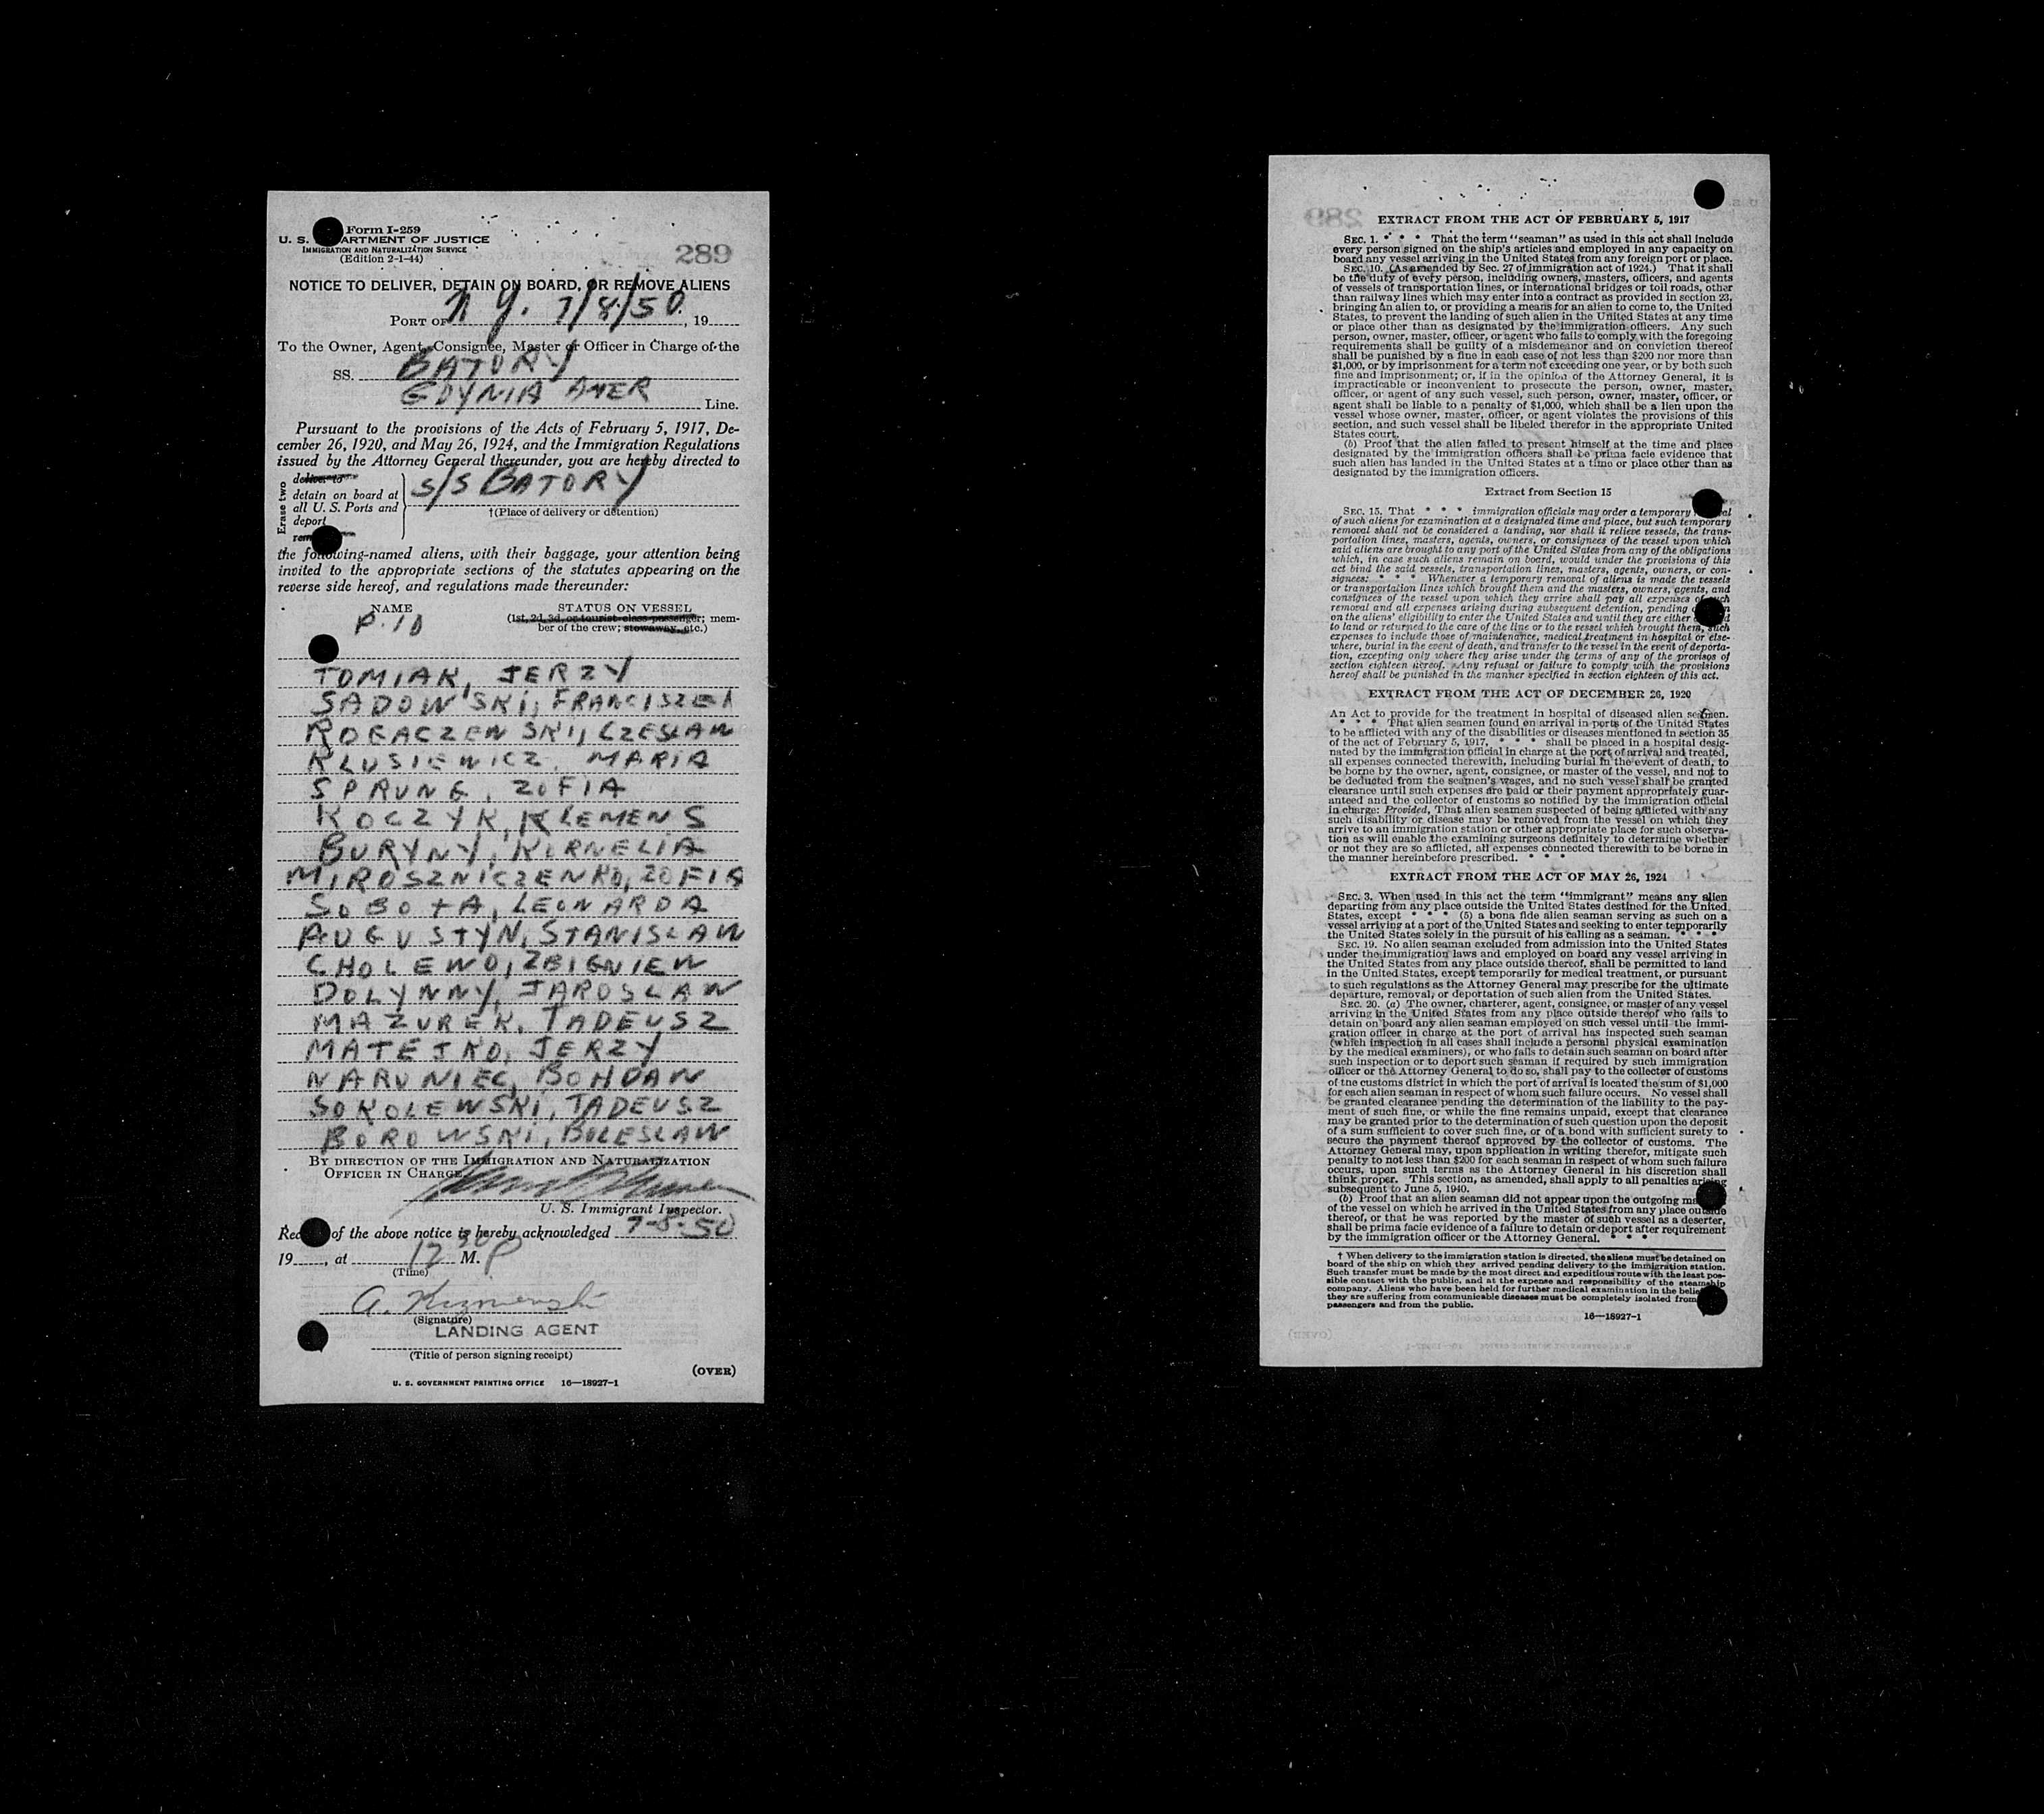 Form I-259
U. S. DEPARTMENT OF JUSTICE
IMMIGRATION AND NATURALIZATION SERVICE
(Edition 2-1-44)
289
NOTICE TO DELIVER, DETAIN ON BOARD, OR REMOVE ALIENS
PORT OF N Y. 7/8/50, 19
To the Owner, Agent, Consignee, Master or Officer in Charge of the
SS. BATORY
GDYNIA AMER Line.
Pursuant to the provisions of the Acts of February 5, 1917, De-
cember 26, 1920, and May 26, 1924, and the Immigration Regulations
issued by the Attorney General thereunder, you are hereby directed to
Erase two
deliver to
detain on board at
all U. S. Ports and
deport
S/S BATORY
†(Place of delivery or detention)
the following-named aliens, with their baggage, your attention being
invited to the appropriate sections of the statutes appearing on the
reverse side hereof, and regulations made thereunder:
NAME STATUS ON VESSEL
P. 10 (1st, 2d, 3d, or tourist class passenger; mem-
ber of the crew; stowaway, etc.)
TOMIAK, JERZY
SADOWSKI, FRANCISZEK
ROGACZEWSKI, CZESLAW
KLUSIEWICZ, MARIA
SPRUNG, ZOFIA
KOCZYK, KLEMENS
BURYNY, KORNELIA
MIROSZNICZENKO, ZOFIA
SOBOTA, LEONARDA
AUGUSTYN, STANISLAW
CHOLEWO, ZBIGNIEW
DOLYNNY, JAROSLAW
MAZUREK, TADEUSZ
MATEJKO, JERZY
NARUNIEC, BOHDAN
SOKOLEWSKI, TADEUSZ
BOROWSKI, BOLESLAW
BY DIRECTION OF THE IMMIGRATION AND NATURALIZATION
OFFICER IN CHARGE
U. S. Immigrant Inspector.
of the above notice is hereby acknowledged 7-8-50
19, at 12 30 P M.
(Time)
A.
(Signature)
LANDING AGENT
(Title of person signing receipt)
(OVER)
U. S. GOVERNMENT PRINTING OFFICE 16—18927-1
EXTRACT FROM THE ACT OF FEBRUARY 5, 1917
SEC. 1. * * * That the term "seaman" as used in this act shall include
every person signed on the ship's articles and employed in any capacity on
board any vessel arriving in the United States from any foreign port or place.
SEC. 10. (As amended by Sec. 27 of immigration act of 1924.) That it shall
be the duty of every person, including owners, masters, officers, and agents
of vessels of transportation lines, or international bridges or toll roads, other
than railway lines which may enter into a contract as provided in section 23,
bringing an alien to, or providing a means for an alien to come to, the United
States, to prevent the landing of such alien in the United States at any time
or place other than as designated by the immigration officers. Any such
person, owner, master, officer, or agent who fails to comply with the foregoing
requirements shall be guilty of a misdemeanor and on conviction thereof
shall be punished by a fine in each case of not less than $200 nor more than
$1,000, or by imprisonment for a term not exceeding one year, or by both such
fine and imprisonment; or, if in the opinion of the Attorney General, it is
impracticable or inconvenient to prosecute the person, owner, master,
officer, or agent of any such vessel, such person, owner, master, officer, or
agent shall be liable to a penalty of $1,000, which shall be a lien upon the
vessel whose owner, master, officer, or agent violates the provisions of this
section, and such vessel shall be libeled therefor in the appropriate United
States court.
(b) Proof that the alien failed to present himself at the time and place
designated by the immigration officers shall be prima facie evidence that
such alien has landed in the United States at a time or place other than as
designated by the immigration officers.
Extract from Section 15
SEC. 15. That * * * immigration officials may order a temporary removal
of such aliens for examination at a designated time and place, but such temporary
removal shall not be considered a landing, nor shall it relieve vessels, the trans-
portation lines, masters, agents, owners, or consignees of the vessel upon which
said aliens are brought to any port of the United States from any of the obligations
which, in case such aliens remain on board, would under the provisions of this
act bind the said vessels, transportation lines, masters, agents, owners, or con-
signees: * * * Whenever a temporary removal of aliens is made the vessels
or transportation lines which brought them and the masters, owners, agents, and
consignees of the vessel upon which they arrive shall pay all expenses of such
removal and all expenses arising during subsequent detention, pending
on the aliens' eligibility to enter the United States and until they are either
to land or returned to the care of the line or to the vessel which brought them, such
expenses to include those of maintenance, medical treatment in hospital or else-
where, burial in the event of death, and transfer to the vessel in the event of deporta-
tion, excepting only where they arise under the terms of any of the provisos of
section eighteen hereof. Any refusal or failure to comply with the provisions
hereof shall be punished in the manner specified in section eighteen of this act.
EXTRACT FROM THE ACT OF DECEMBER 26, 1920
An Act to provide for the treatment in hospital of diseased alien seamen.
* * * That alien seamen found on arrival in ports of the United States
to be afflicted with any of the disabilities or diseases mentioned in section 35
of the act of February 5, 1917, * * * shall be placed in a hospital desig-
nated by the immigration official in charge at the port of arrival and treated,
all expenses connected therewith, including burial in the event of death, to
be borne by the owner, agent, consignee, or master of the vessel, and not to
be deducted from the seamen's wages, and no such vessel shall be granted
clearance until such expenses are paid or their payment appropriately guar-
anteed and the collector of customs so notified by the immigration official
in charge: Provided, That alien seamen suspected of being afflicted with any
such disability or disease may be removed from the vessel on which they
arrive to an immigration station or other appropriate place for such observa-
tion as will enable the examining surgeons definitely to determine whether
or not they are so afflicted, all expenses connected therewith to be borne in
the manner hereinbefore prescribed. * * *
EXTRACT FROM THE ACT OF MAY 26, 1924
SEC. 3. When used in this act the term "immigrant" means any alien
departing from any place outside the United States destined for the United
States, except * * * (5) a bona fide alien seaman serving as such on a
vessel arriving at a port of the United States and seeking to enter temporarily
the United States solely in the pursuit of his calling as a seaman. * * *
SEC. 19. No alien seaman excluded from admission into the United States
under the immigration laws and employed on board any vessel arriving in
the United States from any place outside thereof, shall be permitted to land
in the United States, except temporarily for medical treatment, or pursuant
to such regulations as the Attorney General may prescribe for the ultimate
departure, removal, or deportation of such alien from the United States.
SEC. 20. (a) The owner, charterer, agent, consignee, or master of any vessel
arriving in the United States from any place outside thereof who fails to
detain on board any alien seaman employed on such vessel until the immi-
gration officer in charge at the port of arrival has inspected such seaman
(which inspection in all cases shall include a personal physical examination
by the medical examiners), or who fails to detain such seaman on board after
such inspection or to deport such seaman if required by such immigration
officer or the Attorney General to do so, shall pay to the collector of customs
of the customs district in which the port of arrival is located the sum of $1,000
for each alien seaman in respect of whom such failure occurs. No vessel shall
be granted clearance pending the determination of the liability to the pay-
ment of such fine, or while the fine remains unpaid, except that clearance
may be granted prior to the determination of such question upon the deposit
of a sum sufficient to cover such fine, or of a bond with sufficient surety to
secure the payment thereof approved by the collector of customs. The
Attorney General may, upon application in writing therefor, mitigate such
penalty to not less than $200 for each seaman in respect of whom such failure
occurs, upon such terms as the Attorney General in his discretion shall
think proper. This section, as amended, shall apply to all penalties arising
subsequent to June 5, 1940.
(b) Proof that an alien seaman did not appear upon the outgoing
of the vessel on which he arrived in the United States from any place outside
thereof, or that he was reported by the master of such vessel as a deserter,
shall be prima facie evidence of a failure to detain or deport after requirement
by the immigration officer or the Attorney General. * * *
† When delivery to the immigration station is directed, the aliens must be detained on
board of the ship on which they arrived pending delivery to the immigration station.
Such transfer must be made by the most direct and expeditious route with the least pos-
sible contact with the public, and at the expense and responsibility of the steamship
company. Aliens who have been held for further medical examination in the belief
they are suffering from communicable diseases must be completely isolated from
passengers and from the public.
16—18927-1